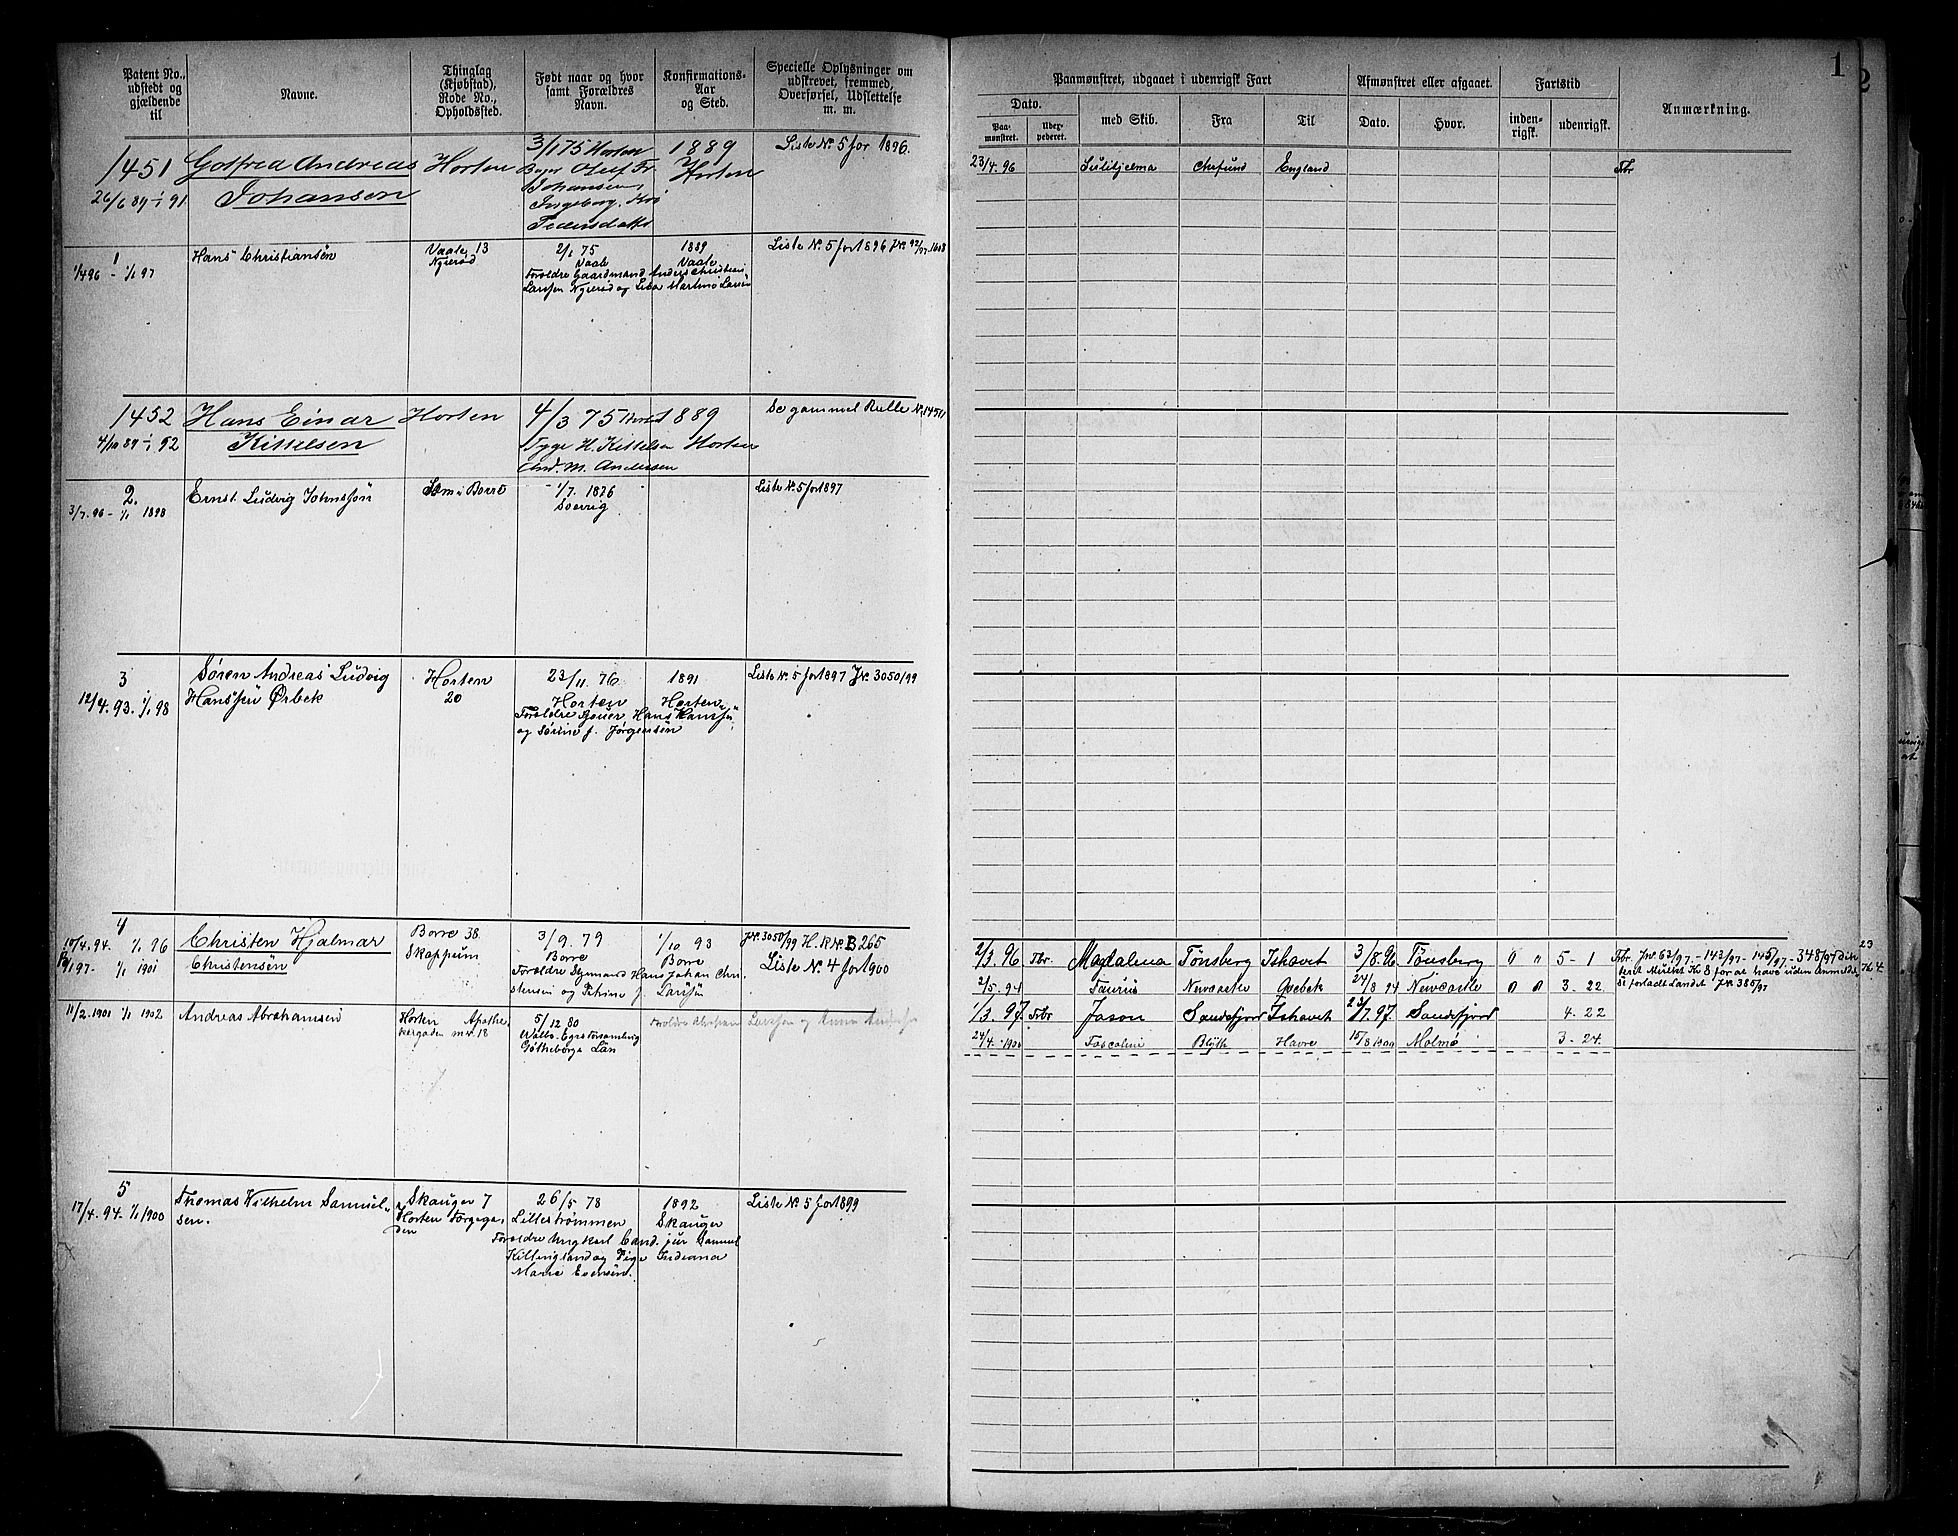 Patent No., udstedt og gjældende til
Navne.
Thinglag (Kjøbstad), Rode No., Opholdssted.
Født naar og hvor samt Forældres Navn.
Konfirmations-Aar og Sted.
Specielle Oplysninger om udskrevet, fremmed, Overførsel, Udslettelse m. m.
Paamønstret, udgaaet i udenrigsk Fart
Afmønstret eller afgaaet.
Fartstid
Anmærkning.
1
2
Dato.
Paa-mønstret.
Udex-pederet.
med Skib.
Fra
Til
Dato.
Hvor.
inden-rigsk.
udenrigsk.
1451
26/6 89 - 1/1 91
Gotfred Andreas
Johansen
Horten
3/1 75 Horten
Olaf Fr.
Johansen,
Ingeborg
Pedersdatter
1889
Horten
Liste No. 5 for 1896.
23/4. 96
Sulitjelma
England
Fbr
1
1/4 96 - 1/1 97
Hans Christiansen
Vaale, 13
Nyerød
2/1 75
Vaale
1889
Vaale
Forældre Gaardmand Anders Christian
Larsen Nyerød og Martine
Liste No. 5 for 1896 JNo. 92/97. 1608
1452
4/10 89 - 1/1 92
Hans Einar
Kittelsen
Horten
4/3 75 Horten
1889
H. Kittelsen
Horten
And. M. Andersen
Se gammel Rulle No. 1451
2.
3/7. 96 - 1/1 1898
Ernst Ludvig Johnssøn
Søm i Borre
1/7. 1876
Liste No. 5 for 1897
3
12/4. 93. 1/1 98
Søren Andreas Ludvig
Hanssen Ørbek
Horten
20
23/11 76
Horten
1891
Horten
Forældre Hans Hanssen
og Sørine f. Jørgensen
Liste No. 5 for 1897 JNo. 3050/99
4
10/4. 94. 1/1 96
1/1 1901
Christen Hjalmar
Christensen
Borre 38
Skoppum
3/9. 79
Borre
1/10 93
Borre
Forældre Styrmand Hans Johan Chri-
stensen og Petrine f. Larsen
JNo. 3050/99 H. RNo. B 265
Liste No. 4 for 1900
2/3. 96 Fbr. Magdalena Tønsberg Ishavet 3/8. 96 Tønsberg 0 " 5 - 1
2/5 - 94 Taurus Newcastle Qvebek 24/8 94 Newcastle 0 0 3. 22.
1/3. 97. Fbr Jason Sandefjord Ishavet 23/7. 97. Sandefjord 4. 22
24/4. - 1900 Blyth Havre 15/8 1900 Malmø 3 - 24.
Fbr. JNo. 63/97 - 143/97 - 145/97 - 348/97
Mulkt Kr 8 for at have uden Anmeldel-
se forladt Landet JNo. 385/97
11/2. 1901 1/1 1902
Andreas Abrahamsen
Horten Apothe-
kergaden m. v. 18
5/12 80
Göteborgs Län
5
17/4. 94. - 1/1 1900
Thomas Wilhelm Samuel-
sen.
Skauger 7
Horten Torvga-
den
26/5 78
Lillestrømmen
1892
Skauger
Forældre Ungkarl Cand. jur Samuel
Killingland og Pige Indiana
Marie Evensen.
Liste No. 5 for 1899